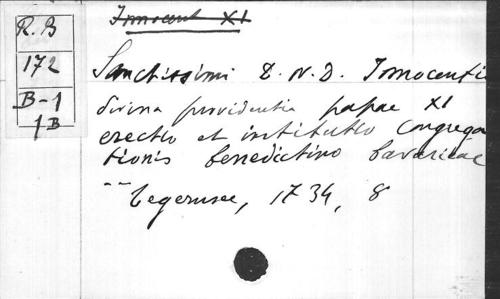 Innocent XI
R. B
172
B-1
1B
Sanctissimi D. N. D. Innocentii
divina providentia papae XI
erectio et institutio Congrega
tionis benedictino bavaricae
-- Tegernsee, 1734, 8